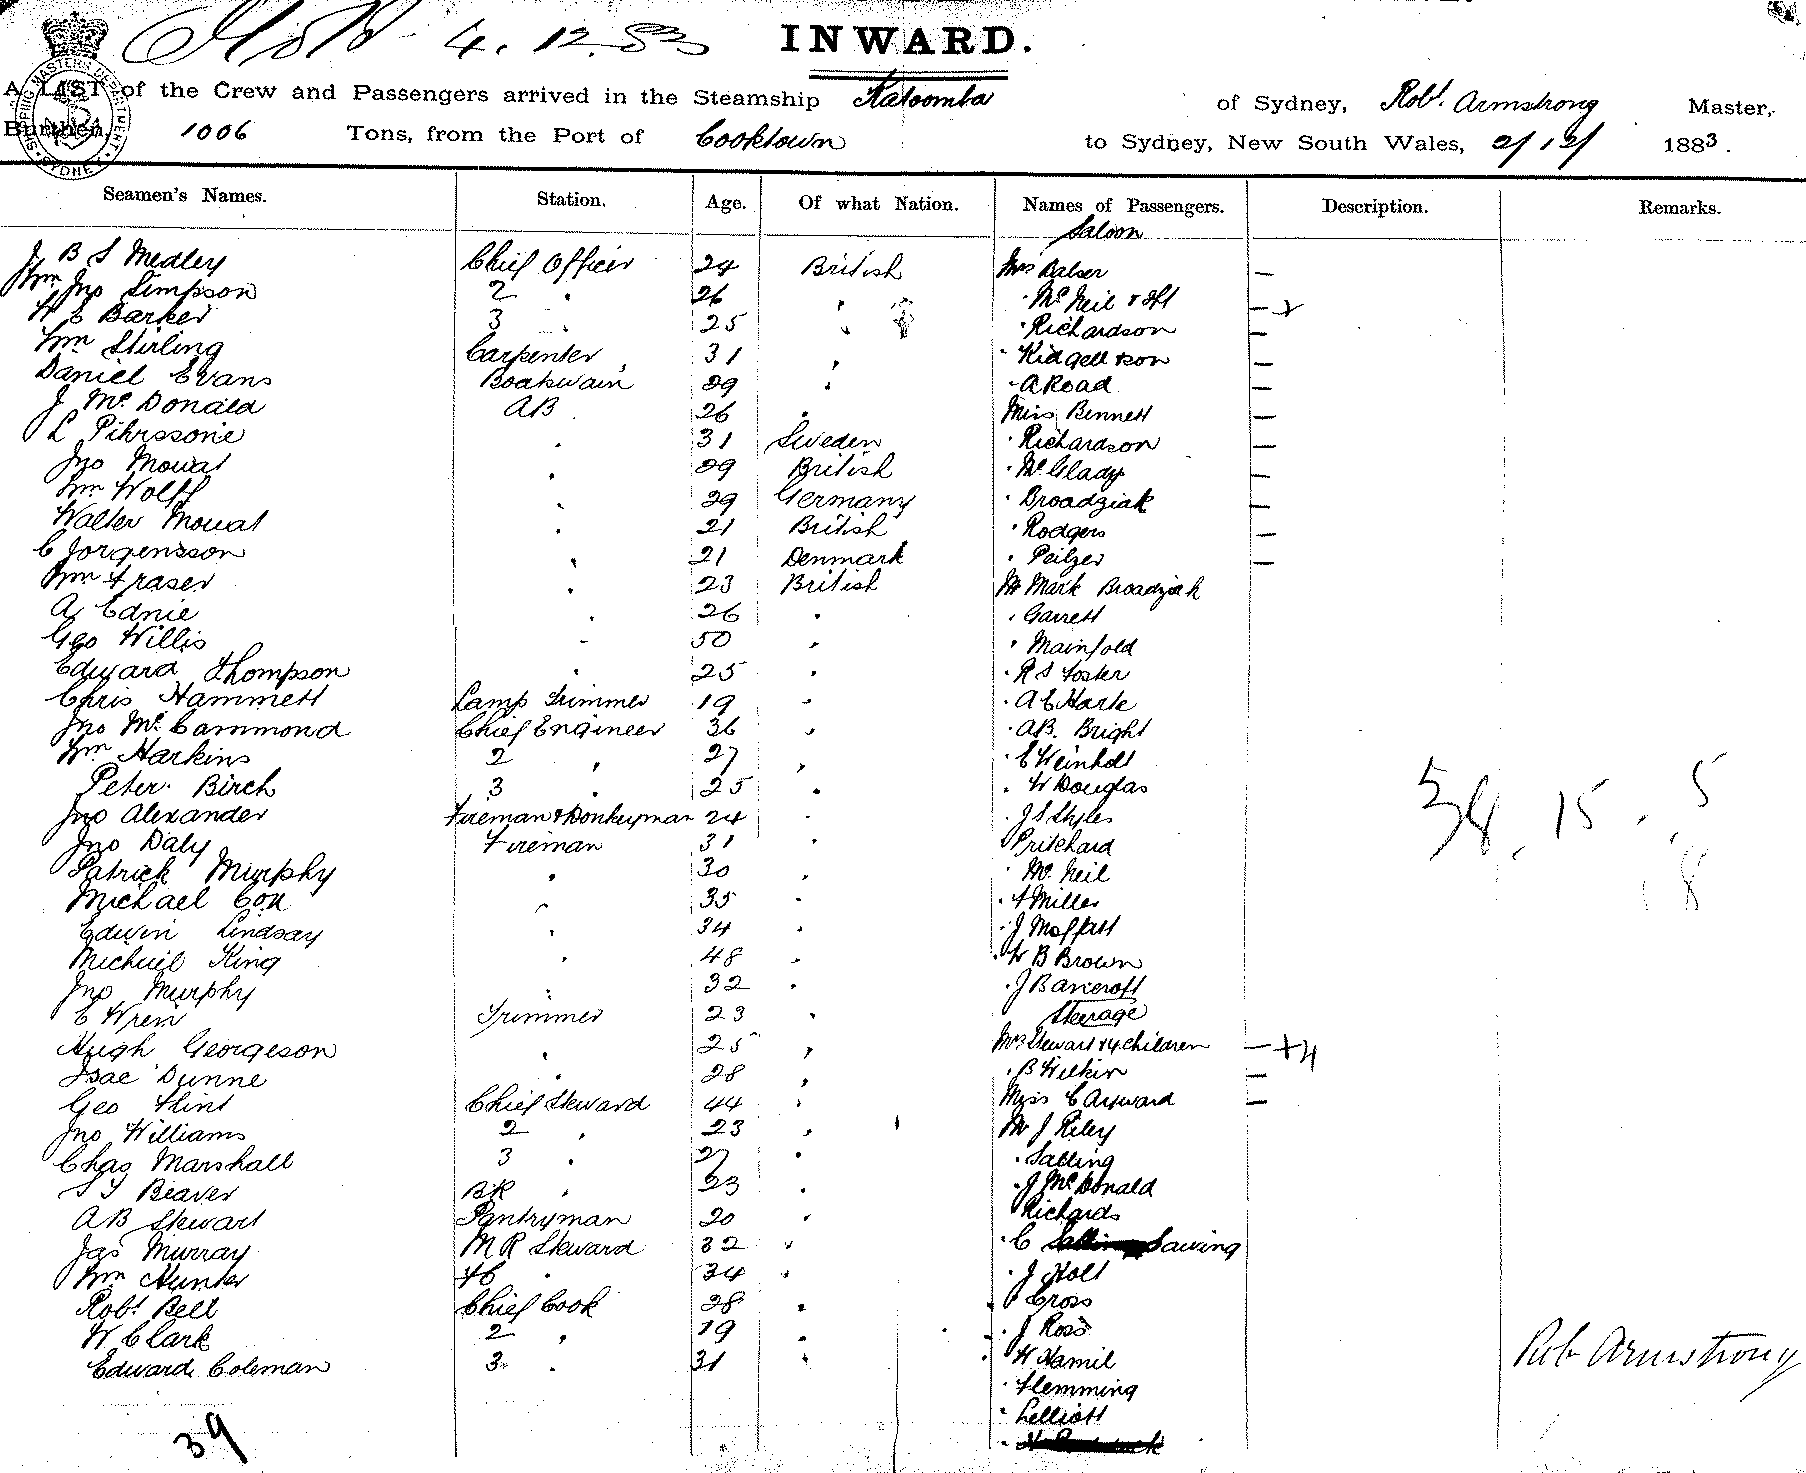 4.12.83
INWARD.
A LIST of the Crew and Passengers arrived in the Steamship Katoomba of Sydney, Robt. Armstrong Master,
Burthen, 1006 Tons, from the Port of Cooktown to Sydney, New South Wales, 2/12/ 1883.
SHIPPING MASTERS DEPARTMENT SYDNEY
Seamen's Names. Station. Age. Of what Nation. Names of Passengers. Description. Remarks.
Saloon
J B S Medley Chief Officer 24 British Mrs Balser —
Wm Jno Simpson 2 " 26 " " McNeil —
H E Barker 3 " 25 " " Richardson —
Wm Stirling Carpenter 31 " " Kidgell & son —
Daniel Evans Boatswain 29 " " A Road —
J McDonald AB 26 " Miss Bennett —
L Pihrssone " 31 Sweden " Richardson —
Jno Mowat " 29 British " McGlady —
Wm Wolff " 29 Germany " Broadziak —
Walter Mowat " 21 British " Rodgers —
C Jorgensson " 21 Denmark " Peilzer —
Wm Fraser " 23 British Mr Mark Broadziak
A Ednie " 26 " " Garrett
Geo Willis " 50 " " Mainfold
Edward Thompson " 25 " " R S Foster
Chris Hammett Lamp Trimmer 19 " " A E Harte
Jno McCammond Chief Engineer 36 " " A B. Bright
Wm Harkins 2 " 27 " " E Weinholt
Peter Birch 3 " 25 " " W Douglas
Jno Alexander Fireman & Donkeyman 24 " " J S Styles
Jno Daly Fireman 31 " " Pritchard
Patrick Murphy " 30 " " McNeil
Michael Cox " 35 " " A Miller
Edwin Lindsay " 34 " " J Moffatt
Michael King " 48 " " W B Brown
Jno Murphy " 32 " " J Bancroft
Steerage
E Wren Trimmer 23 "
Hugh Georgeson " 25 " Mrs Stewart & 4 children — +4
Isac Dunne " 28 " " B Wilkin —
Geo Flint Chief Steward 44 " Miss C Ayward —
Jno Williams 2 " 23 " Mr J Riley
Chas Marshall 3 " 27 " " Salling
S J Beaver BR " 23 " " J McDonald
A B Stewart Pantryman 20 " " Richards
Jas Murray M R Steward 32 " " C Sawing
Wm Hunter " 34 " " J Holt
Robt Bell Chief Cook 28 " " Cross
W Clark 2 " 19 " " J Ross
Edward Coleman 3 " 31 " " W Hamil
" Flemming
" Lelliott
15 5
8
Rob Armstrong
39